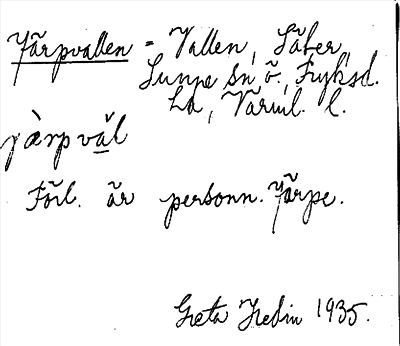 Järpvallen = Vallen, Säter,
Sunne sn ö., Fryksd.
hd, Värml. l.
jàrpvǎl
Förl. är personn. Järpe.
Greta Hedin 1935.